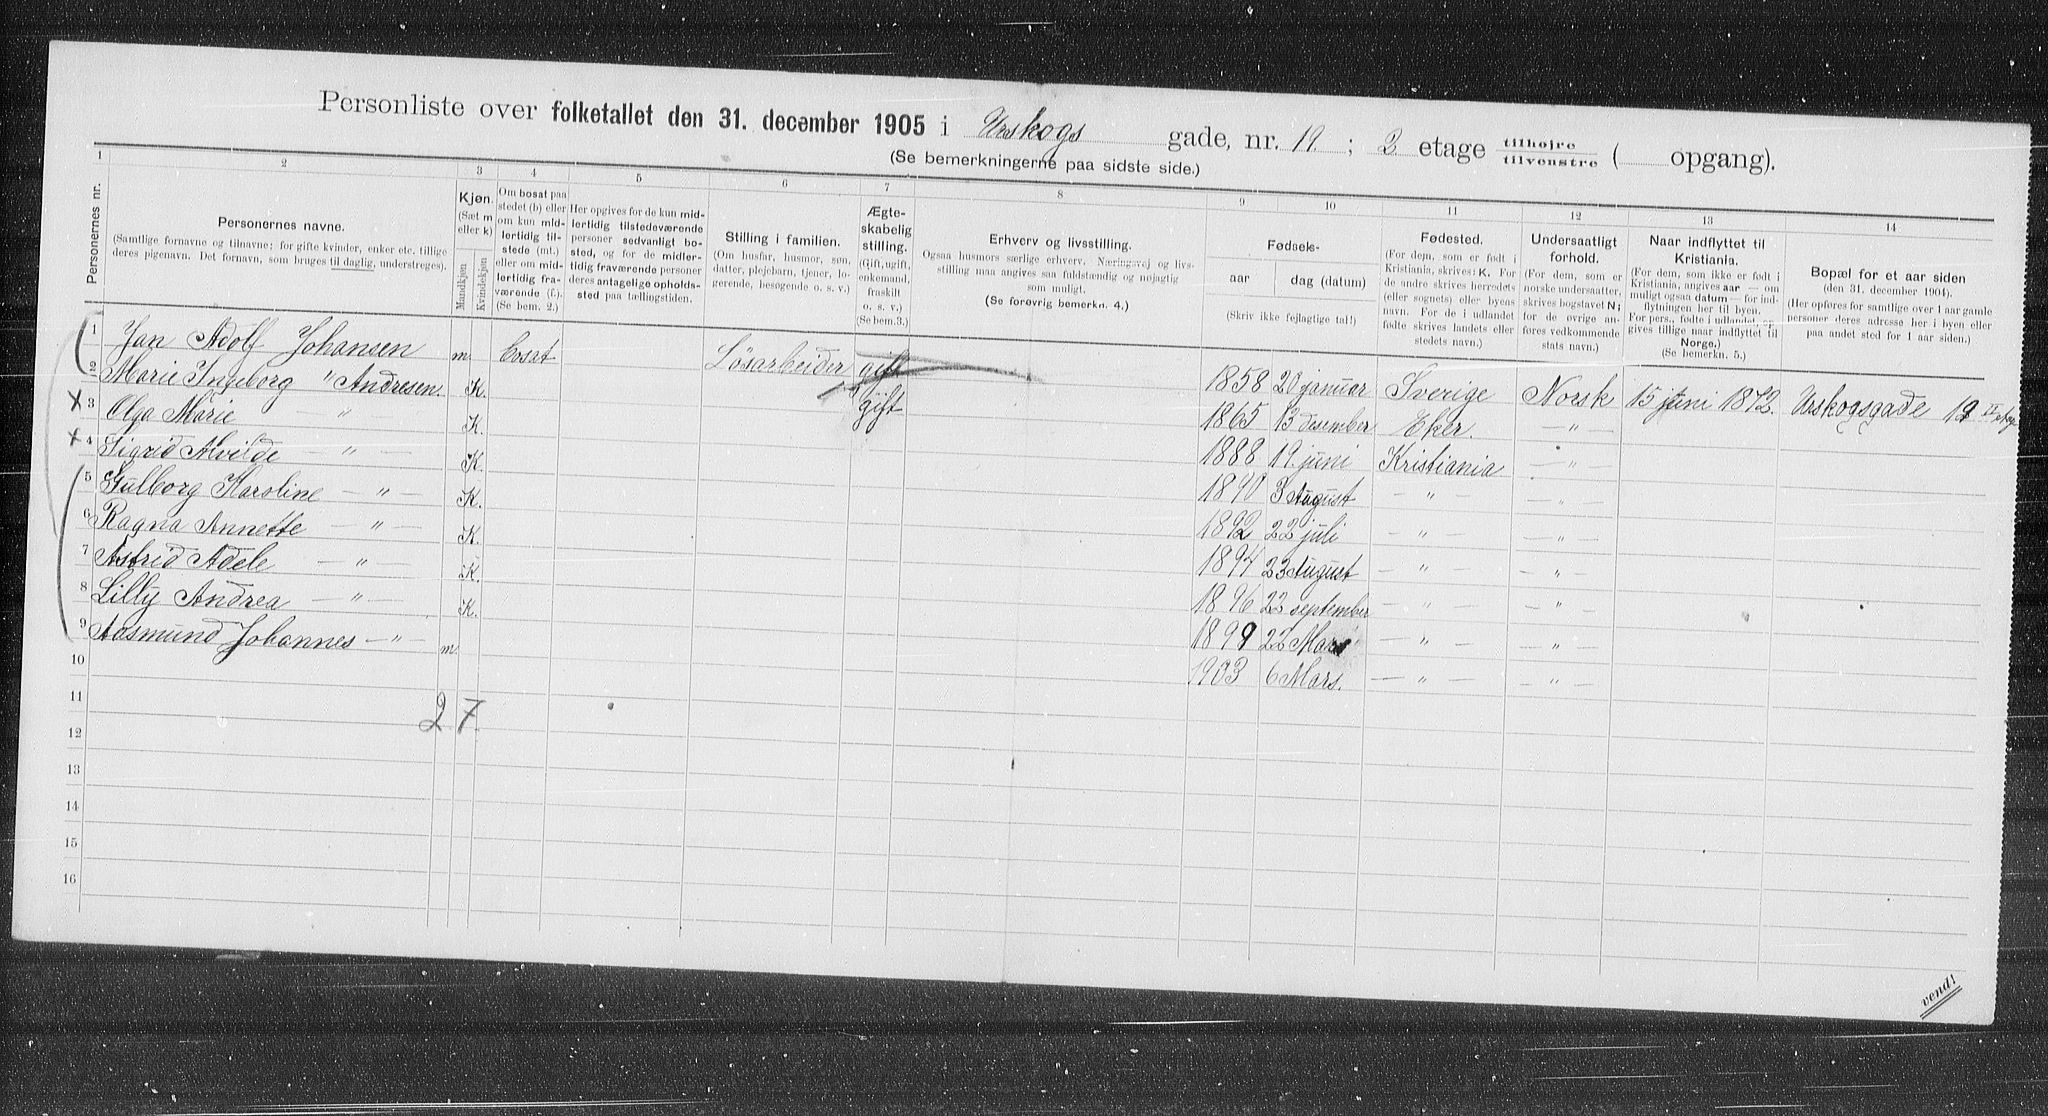 Personliste over folketallet den 31. december 1905 i Urskogs gade, nr. 19 ; 2 etage tilhøjre tilvenstre ( opgang).
(Se bemerkningerne paa sidste side.)
1 2 3 4 5 6 7 8 9 10 11 12 13 14
Personernes nr.
Personernes navne.
(Samtlige fornavne og tilnavne; for gifte kvinder, enker etc. tillige
deres pigenavn. Det fornavn, som bruges til daglig, understreges).
Kjøn.
(Sæt m
eller k)
Mandkjøn
Kvindekjøn
Om bosat paa
stedet (b) eller
om kun mid-
lertidig til-
stede (mt.)
eller om mid-
lertidig fra-
værende (f.).
(Se bem. 2.)
Her opgives for de kun mid-
lertidig tilstedeværende
personer sedvanligt bo-
sted, og for de midler-
tidig fraværende personer
deres antagelige opholds-
sted paa tællingstiden.
Stilling i familien.
(Om husfar, husmor, søn,
datter, plejebarn, tjener, lo-
gerende, besøgende o. s. v.)
Ægte-
skabelig
stilling.
(Gift, ugift,
enkemand,
fraskilt
o. s. v.)
(Se bem.3.)
Erhverv og livsstilling.
Ogsaa husmors særlige erhverv. Næringsvej og livs-
stilling maa angives saa fuldstændig og nøjagtig
som muligt.
(Se forøvrig bemerkn. 4.)
Fødsels-
aar dag (datum)
(Skriv ikke fejlagtige tal!)
Fødested.
(For dem, som er født i
Kristiania, skrives: K. For
de andre skrives herredets
(eller sognets) eller byens
navn. For de i udlandet
fødte skrives landets eller
stedets navn.)
Undersaatligt
forhold.
(For dem, som er
norske undersaatter,
skrives bogstavet N;
for de øvrige an-
føres vedkommende
stats navn.)
Naar indflyttet til
Kristiania.
(For dem, som ikke er født i
Kristiania, angives aar — om
muligt ogsaa datum — for ind-
flytningen her til byen.
For pers., fødte i udlandet, an-
gives tillige naar indflyttet til
Norge.)
(Se bemerkn. 5.)
Bopæl for et aar siden
(den 31. december 1904).
(Her opføres for samtlige over 1 aar gamle
personer deres adresse her i byen eller
paa andet sted for 1 aar siden.)
1 Jan Adolf Johansen m bosat Løsarbeider gift 1858 20 januar Sverige Norsk 15 juni 1872. Urskogsgade 19 II etag
2 Marie Ingeborg " Andresen. K. gift 1865 13 desember Eker. — " —
3 Olga Marie — " — K. 1888 19. juni Kristiania — " —
4 Sigrid Alvilde — " — K 1890 3 August — " — — " —
5 Gulborg Karoline — " — K. 1892 22 juli — " — — " —
6 Ragna Annette — " — K. 1894 23 August — " — — " —
7 Astrid Adele — " — K. 1896 22 september — " — — " —
8 Lilly Andrea — " — K. 1899 22 Mars — " — — " —
9 Aasmund Johannes — " — m. 1903 6 Mars. — " — — " —
10
11
27
12
13
14
15
16
vend!